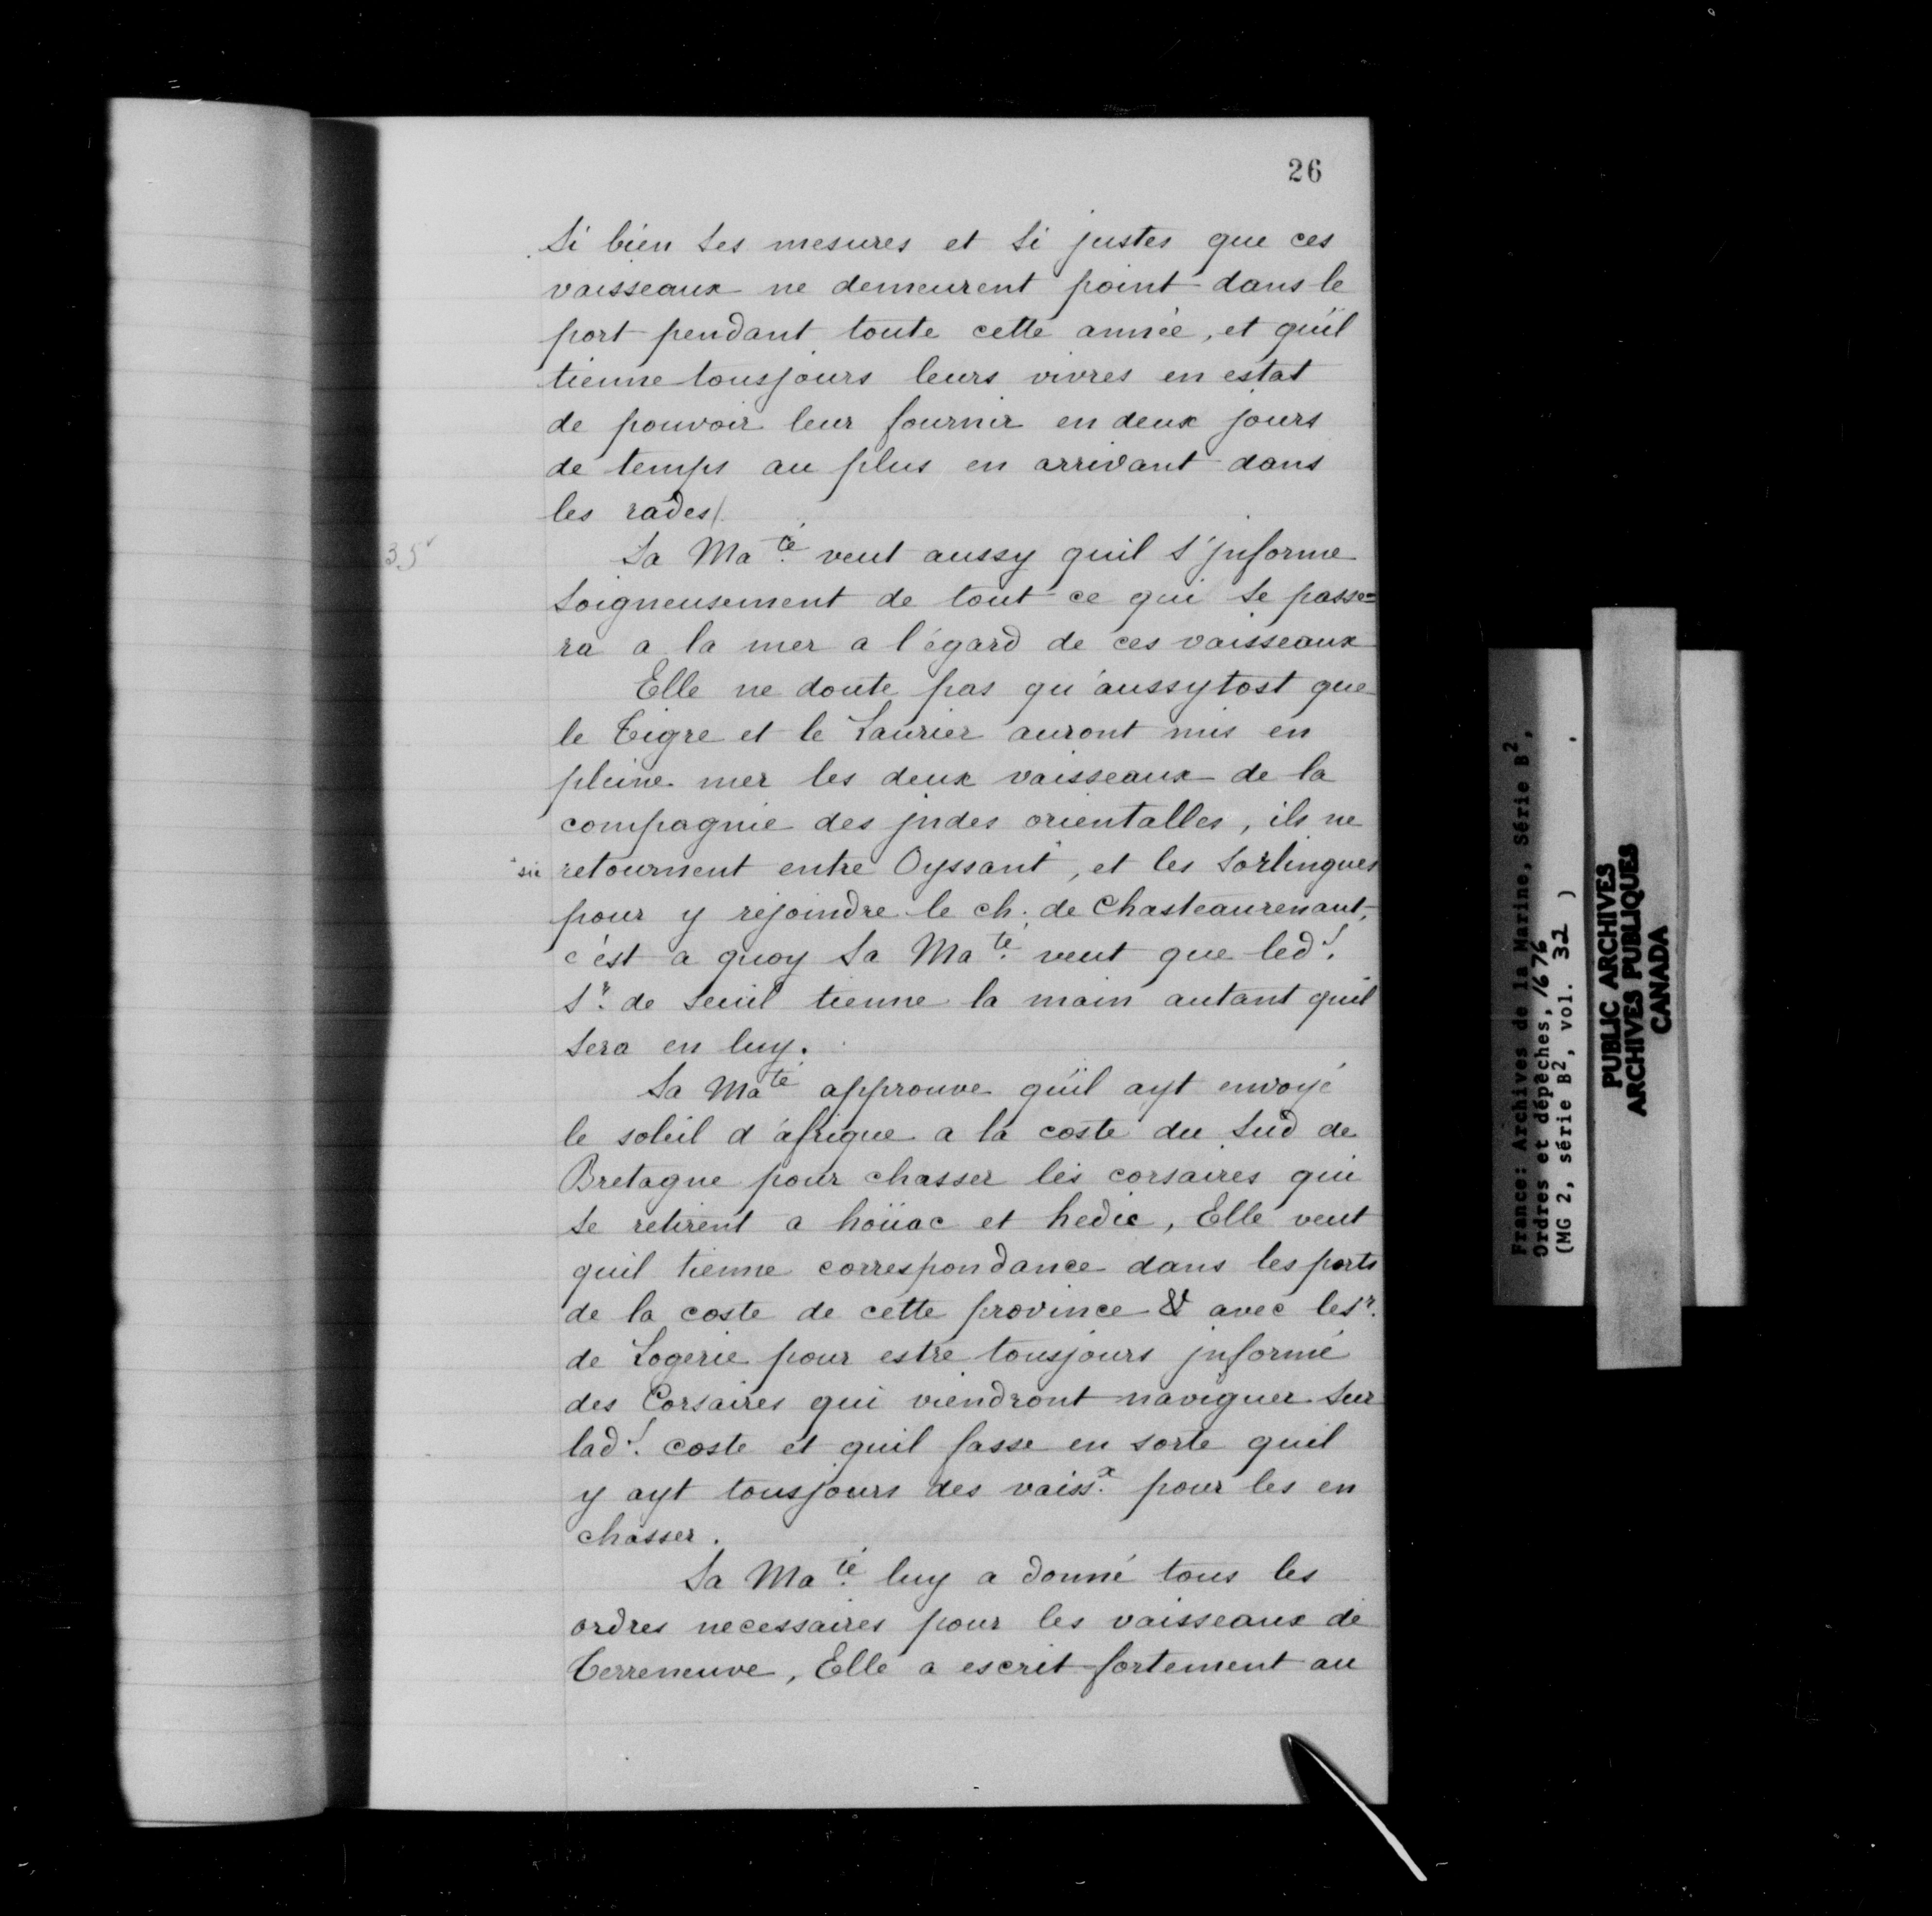 26
Si bien ses mesures et si justes que ces
vaisseaux ne demeurent point dans le
port pendant toute cette année, et qu'il
tienne tousjours leurs vivres en estat
de pouvoir leur fournir en deux jours
de temps au plus en arrivant dans
les rades/.
35v
Sa Ma.té veut aussy quil s'jnforme
soigneusement de tout ce qui se passe=
ra a la mer a l'égard de ces vaisseaux
Elle ne doute pas qu'aussytost que
le Tigre et le Laurier auront mis en
pleine mer les deux vaisseaux de la
compagnie des jndes orientalles, ils ne
"sic retournent entre Oyssant", et les Sorlingues
pour y rejoindre le ch. de Chasteaurenaut,
c'est a quoy Sa Ma.té veut que led.s
Sr. de Seuil tienne la main autant quil
sera en luy.
Sa Maté approuve qu'il ayt envoyé
le soleil d'afrique a la coste du Sud de
Bretagne pour chasser les corsaires qui
se retirent a hoüac et hedic, Elle veut
quil tienne correspondance dans les ports
de la coste de cette province & avec le sr.
de Logerie pour estre tousjours jnformé
des Corsaires qui viendront naviguer sur
lad.s coste et quil fasse en sorte quil
y ayt tousjours des vaiss.x pour les en
chasser.
Sa Ma.té luy a donné tous les
ordres necessaires pour les vaisseaux de
Terreneuve, Elle a escrit fortement au
France: Archives de la Marine, Série B2,
Ordres et dépêches, 1676
(MG 2, série B2, vol. 32 )
PUBLIC ARCHIVES
ARCHIVES PUBLIQUES
CANADA